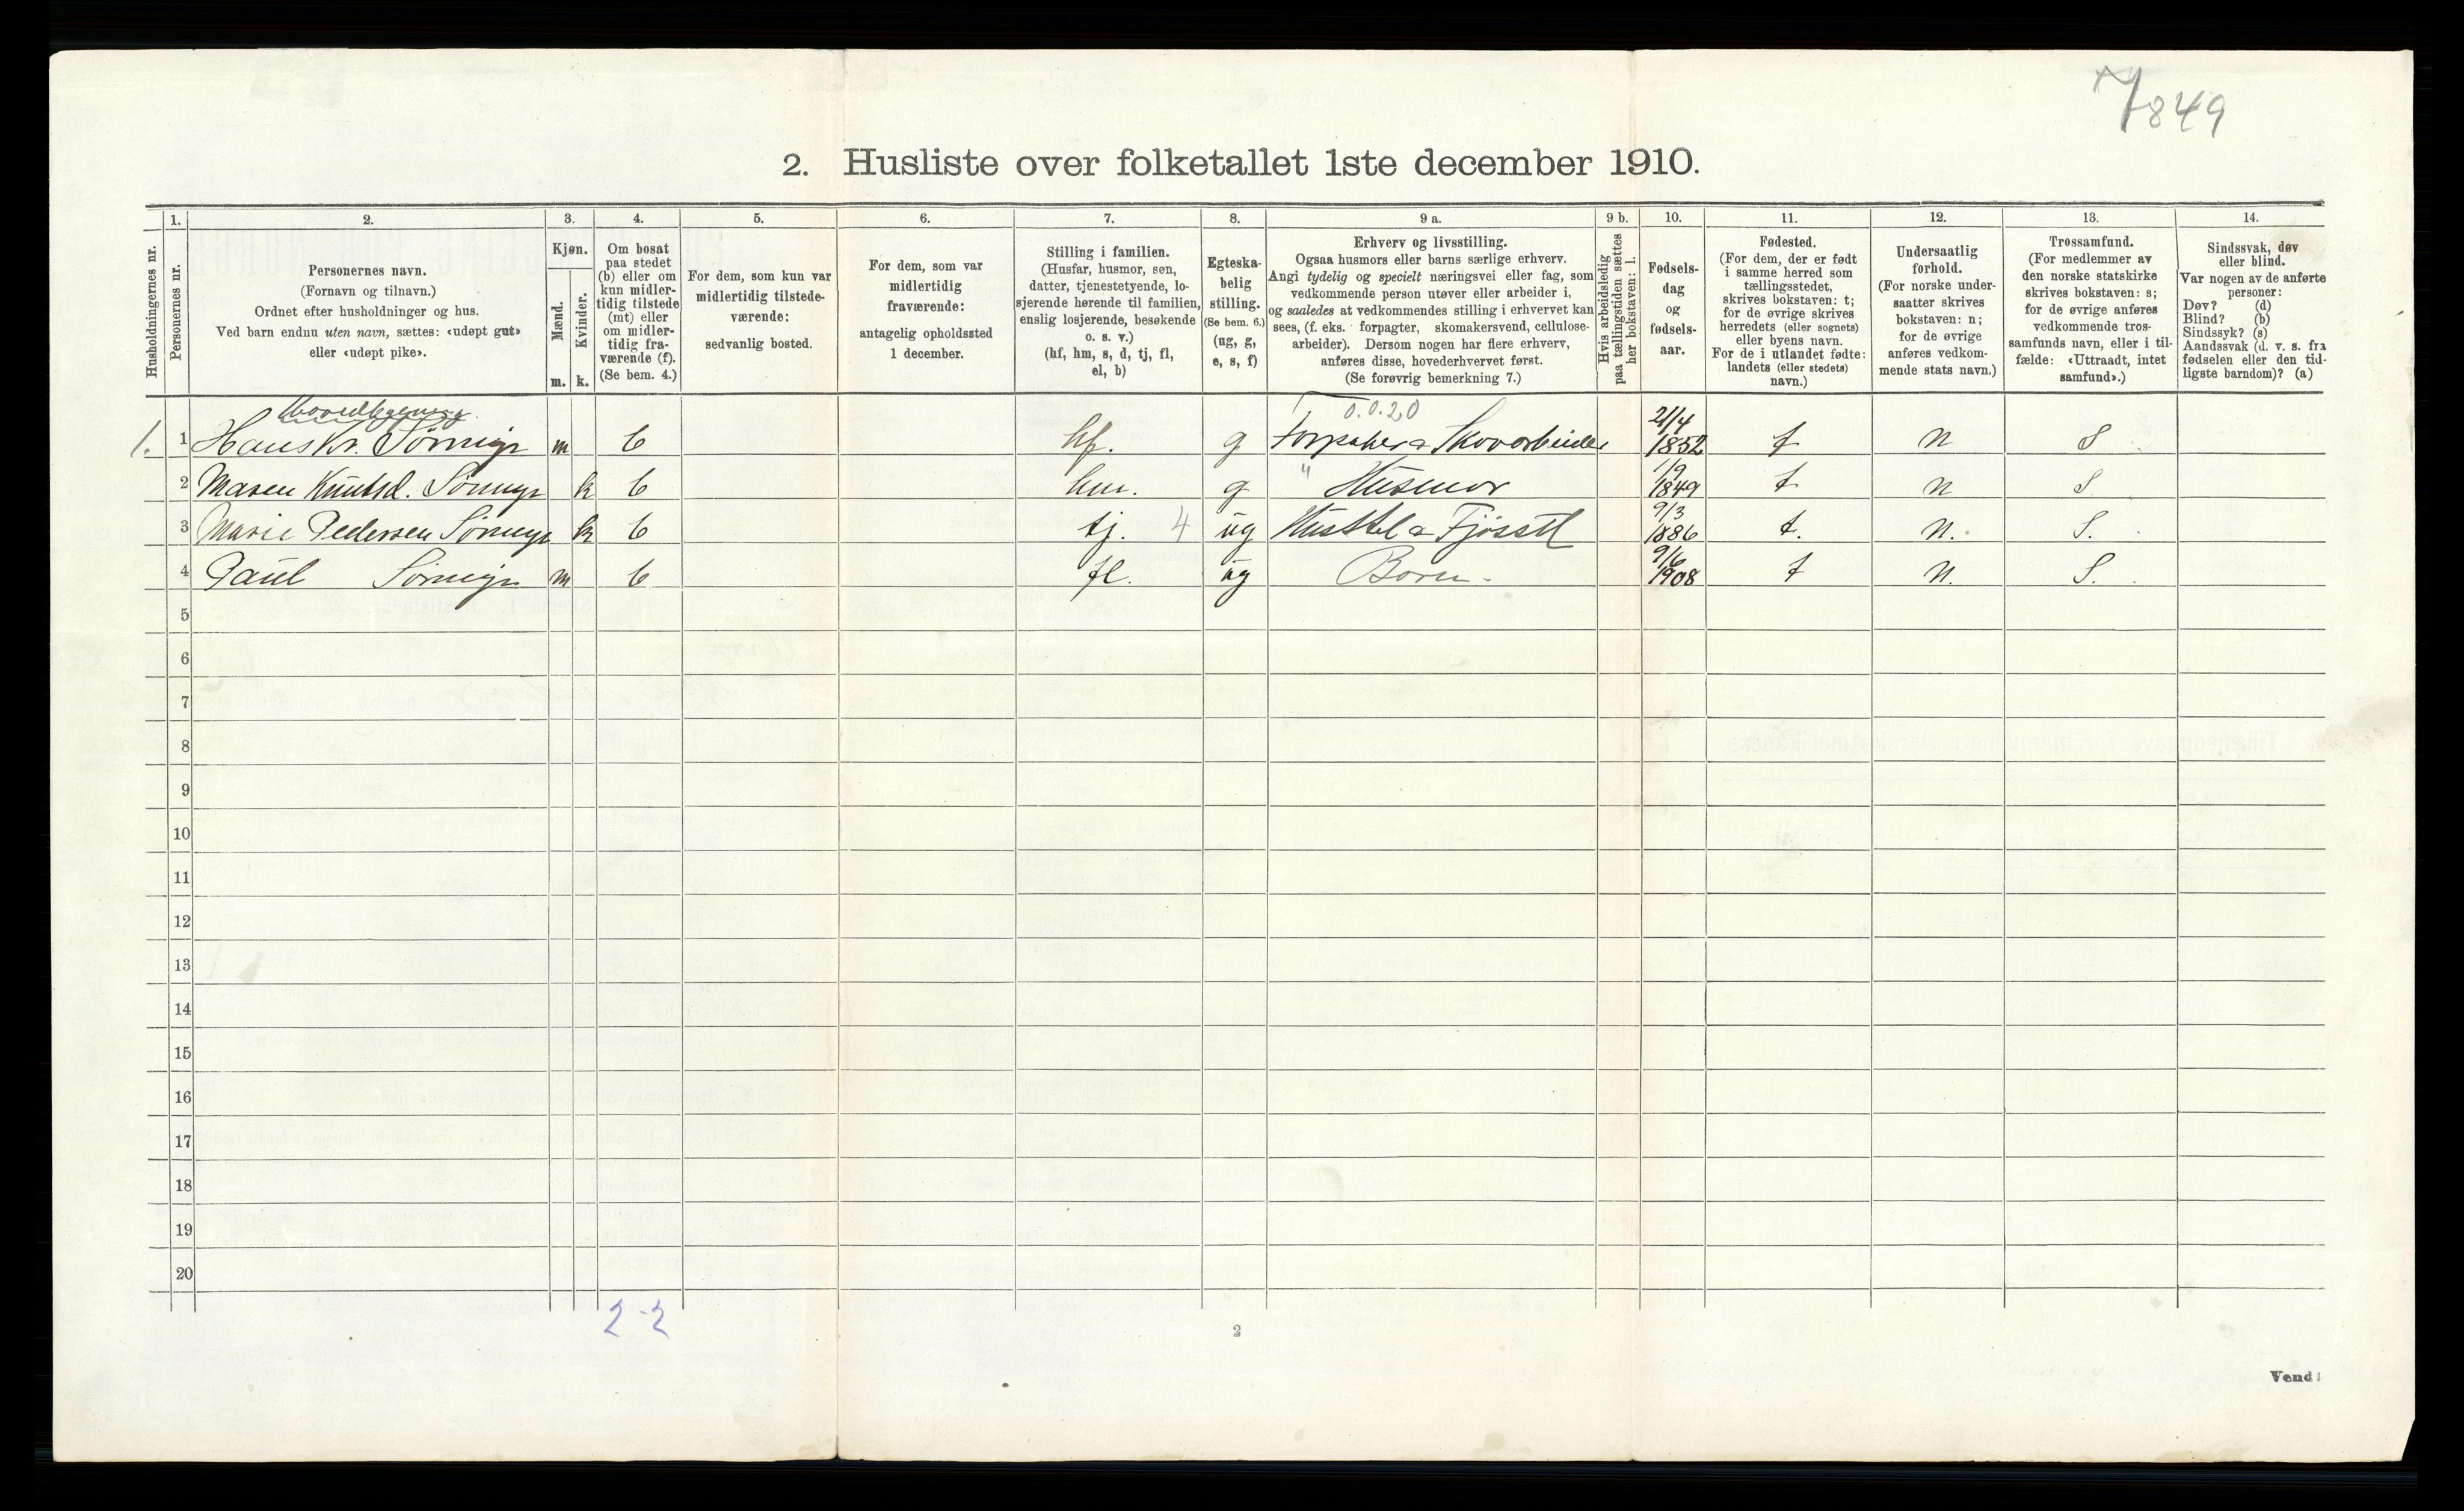 7849
2. Husliste over folketallet 1ste december 1910.
Husholdningernes nr.
1.
Personernes nr.
2.
Personernes navn.
(Fornavn og tilnavn.)
Ordnet efter husholdninger og hus.
Ved barn endnu uten navn, sættes: «udøpt gut»
eller «udøpt pike».
3.
Kjøn.
Mænd.
Kvinder.
m. k.
4.
Om bosat
paa stedet
(b) eller om
kun midler-
tidig tilstede
(mt) eller
om midler-
tidig fra-
værende (f).
(Se bem. 4.)
5.
For dem, som kun var
midlertidig tilstede-
værende:
sedvanlig bosted.
6.
For dem, som var
midlertidig
fraværende:
antagelig opholdssted
1 december.
7.
Stilling i familien.
(Husfar, husmor, søn,
datter, tjenestetyende, lo-
sjerende hørende til familien,
enslig losjerende, besøkende
o. s. v.)
(hf, hm, s, d, tj, fl,
el, b)
8.
Egteska-
belig
stilling.
(Se bem. 6.)
(ug, g,
e, s, f)
9 a.
Erhverv og livsstilling.
Ogsaa husmors eller barns særlige erhverv.
Angi tydelig og specielt næringsvei eller fag, som
vedkommende person utøver eller arbeider i,
og saaledes at vedkommendes stilling i erhvervet kan
sees, (f. eks. forpagter, skomakersvend, cellulose-
arbeider). Dersom nogen har flere erhverv,
anføres disse, hovederhvervet først.
(Se forøvrig bemerkning 7.)
9 b.
Hvis arbeidsledig
paa tællingstiden sættes
her bokstaven: l.
10.
Fødsels-
dag
og
fødsels-
aar.
11.
Fødested.
(For dem, der er født
i samme herred som
tællingsstedet,
skrives bokstaven: t;
for de øvrige skrives
herredets (eller sognets)
eller byens navn.
For de i utlandet fødte:
landets (eller stedets)
navn.)
12.
Undersaatlig
forhold.
(For norske under-
saatter skrives
bokstaven: n;
for de øvrige
anføres vedkom-
mende stats navn.)
13.
Trossamfund.
(For medlemmer av
den norske statskirke
skrives bokstaven: s;
for de øvrige anføres
vedkommende tros-
samfunds navn, eller i til-
fælde: «Uttraadt, intet
samfund».)
14.
Sindssvak, døv
eller blind.
Var nogen av de anførte
personer:
Døv? (d)
Blind? (b)
Sindssyk? (s)
Aandssvak (d. v. s. fra
fødselen eller den tid-
ligste barndom)? (a)
Hovedbygning.
0.0.20
1. 1 Hans Kr. Sørmyr m b hf. g Skovarbeider 21/4 1852 t n s
2 Maren Knutsd. Sørmyr k b hm. g " Husmor 1/9 1849 t n S
3 Marie Pedersen Sørmyr k b tj. 4 ug Husstel & Fjøsstl 9/3 1886 t. n. S.
4 Paul Sørmyr m b fl. ug Born - 9/6 1908 t n. S.
5
6
7
8
9
10
11
12
13
14
15
16
17
18
19
20
2-2
2
Vend!